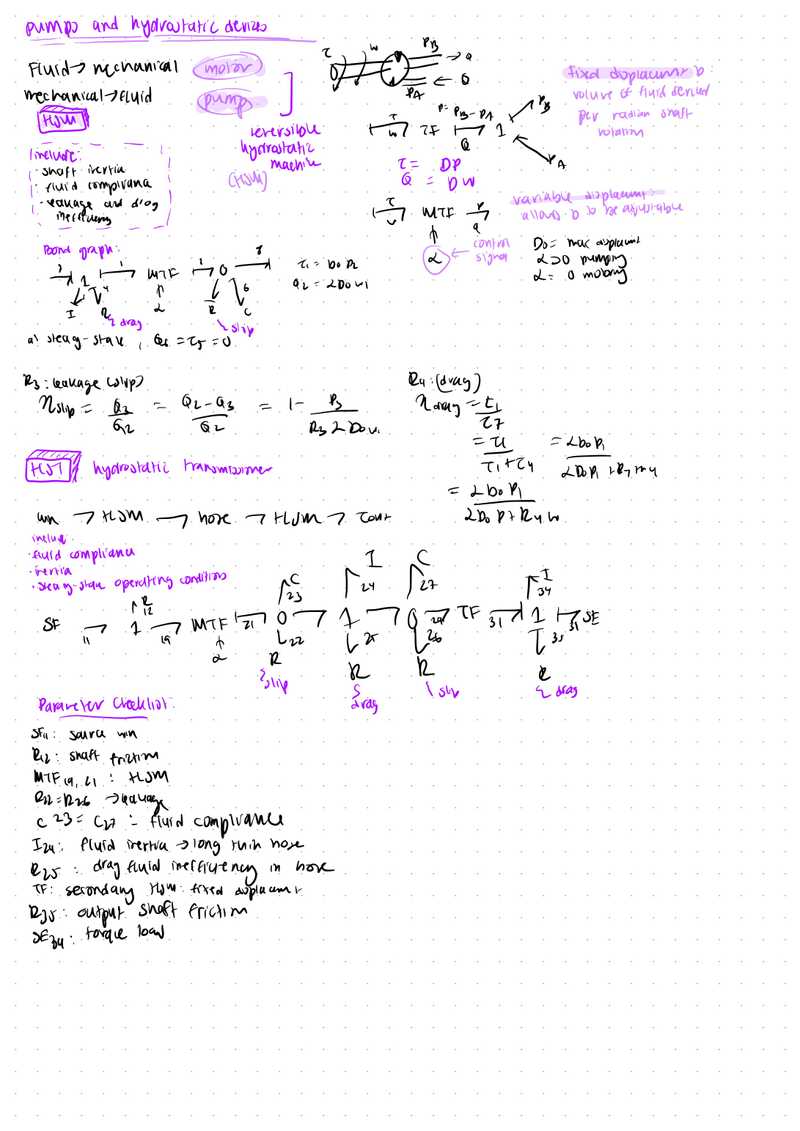 pumps and hydrostatic devices
Fluid → mechanical motor
mechanical → fluid pump
HSM
reversible
hydrostatic
machine
(HSM)
include:
· shaft inertia
· fluid compliance
· leakage and drag
inefficiency
τ ω P_B → Q
P_A ← Q
P = P_B - P_A
τ ω TF Q 1 P_B
P_A
τ = DP
Q = DW
fixed displacement D
volume of fluid
per radian shaft
rotation
variable displacement
allows D to be adjustable
τ MTF P
Q
α ← control
signal
D0 = max displacement
α>0 pumping
α= 0
Bond graph:
1 MTF 0
I R α R C
drag slip
τ1 = D0 P2
Q2 = αD0ω1
at steady-state, Q6 = τ5 = 0
R3: leakage (slip)
ηslip = Q3/Q2 = Q2-Q3/Q2 = 1 - P3/R3αD0ω1
R4: (drag)
ηdrag = τ1/τ7
= τ1/τ1+τ4 = αD0P1
= αD0P1/αD0P+R4ω
HST hydrostatic transmission
win → HSM → hose → HSM → τout
include
· fluid compliance
· inertia
· steady-state operating conditions
R 12 C 23 I 24 C 27 I 34
SF 11 1 19 MTF 21 0 1 0 29 TF 31 1 31 SE
α 22 25 26 35
R R R R
slip drag slip drag
Parameter Checklist:
SF11: source win
R12: shaft friction
MTF19,21: HSM
R22=R26 → leakage
C23 = C27 = fluid compliance
I24: fluid inertia → long thin hose
R25: drag fluid inefficiency in hose
TF: secondary HSM: fixed displacement
R35: output shaft friction
SE34: torque load